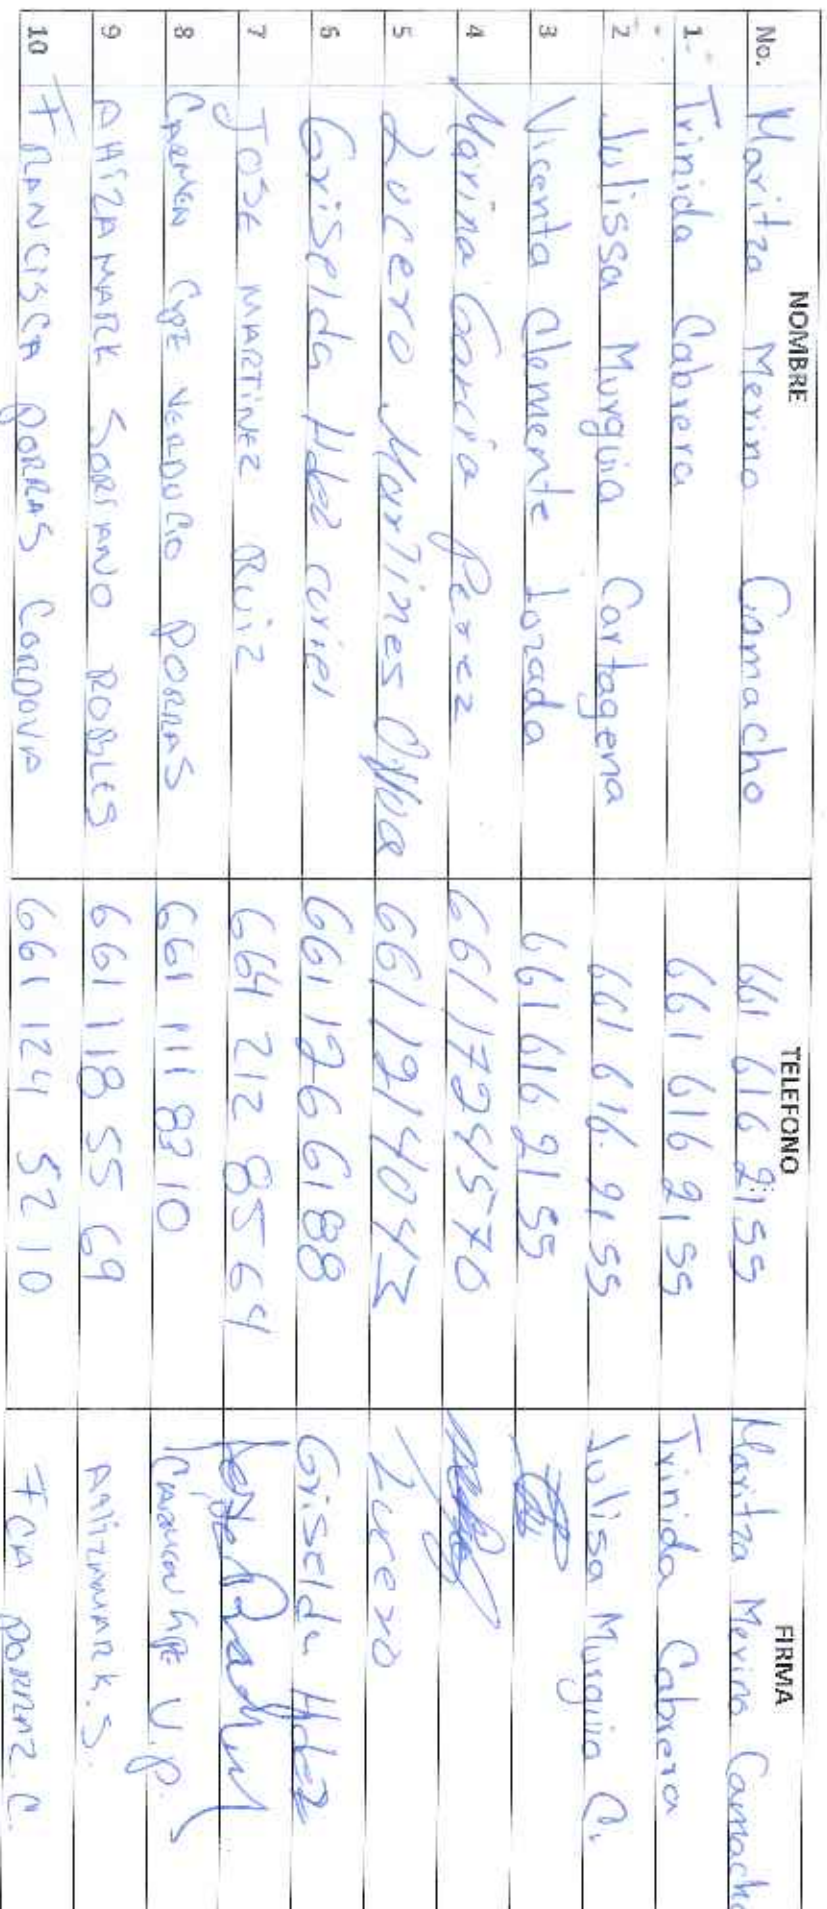 No. NOMBRE TELEFONO FIRMA
Maritza Merino Camacho 661 616 2155 Maritza Merino Camacho
1 Trinida Cabrera 661 616 2155 Trinida Cabrera
2 Julissa Murguia Cartagena 661 616 2155 Julisa Murguia C.
3 Vicenta Clemente Lozada 661 616 2155
4 Marina Garcia Perez 661 1724570
5 Lucero Martines 661 1214043 Lucero
6 Griselda Hdez curiel 661 126 6188 Griselda Hdez
7 JOSE MARTINEZ RUIZ 664 212 8564
8 CARMEN GPE VERDUGO PORRAS 661 111 8310 Carmen Gpe V.P.
9 AHIZAMARK SORIANO ROBLES 661 118 55 69 AHIZAMARK.S.
10 FRANCISCA PORRAS CORDOVA 661 124 52 10 FCA PORRAZ C.